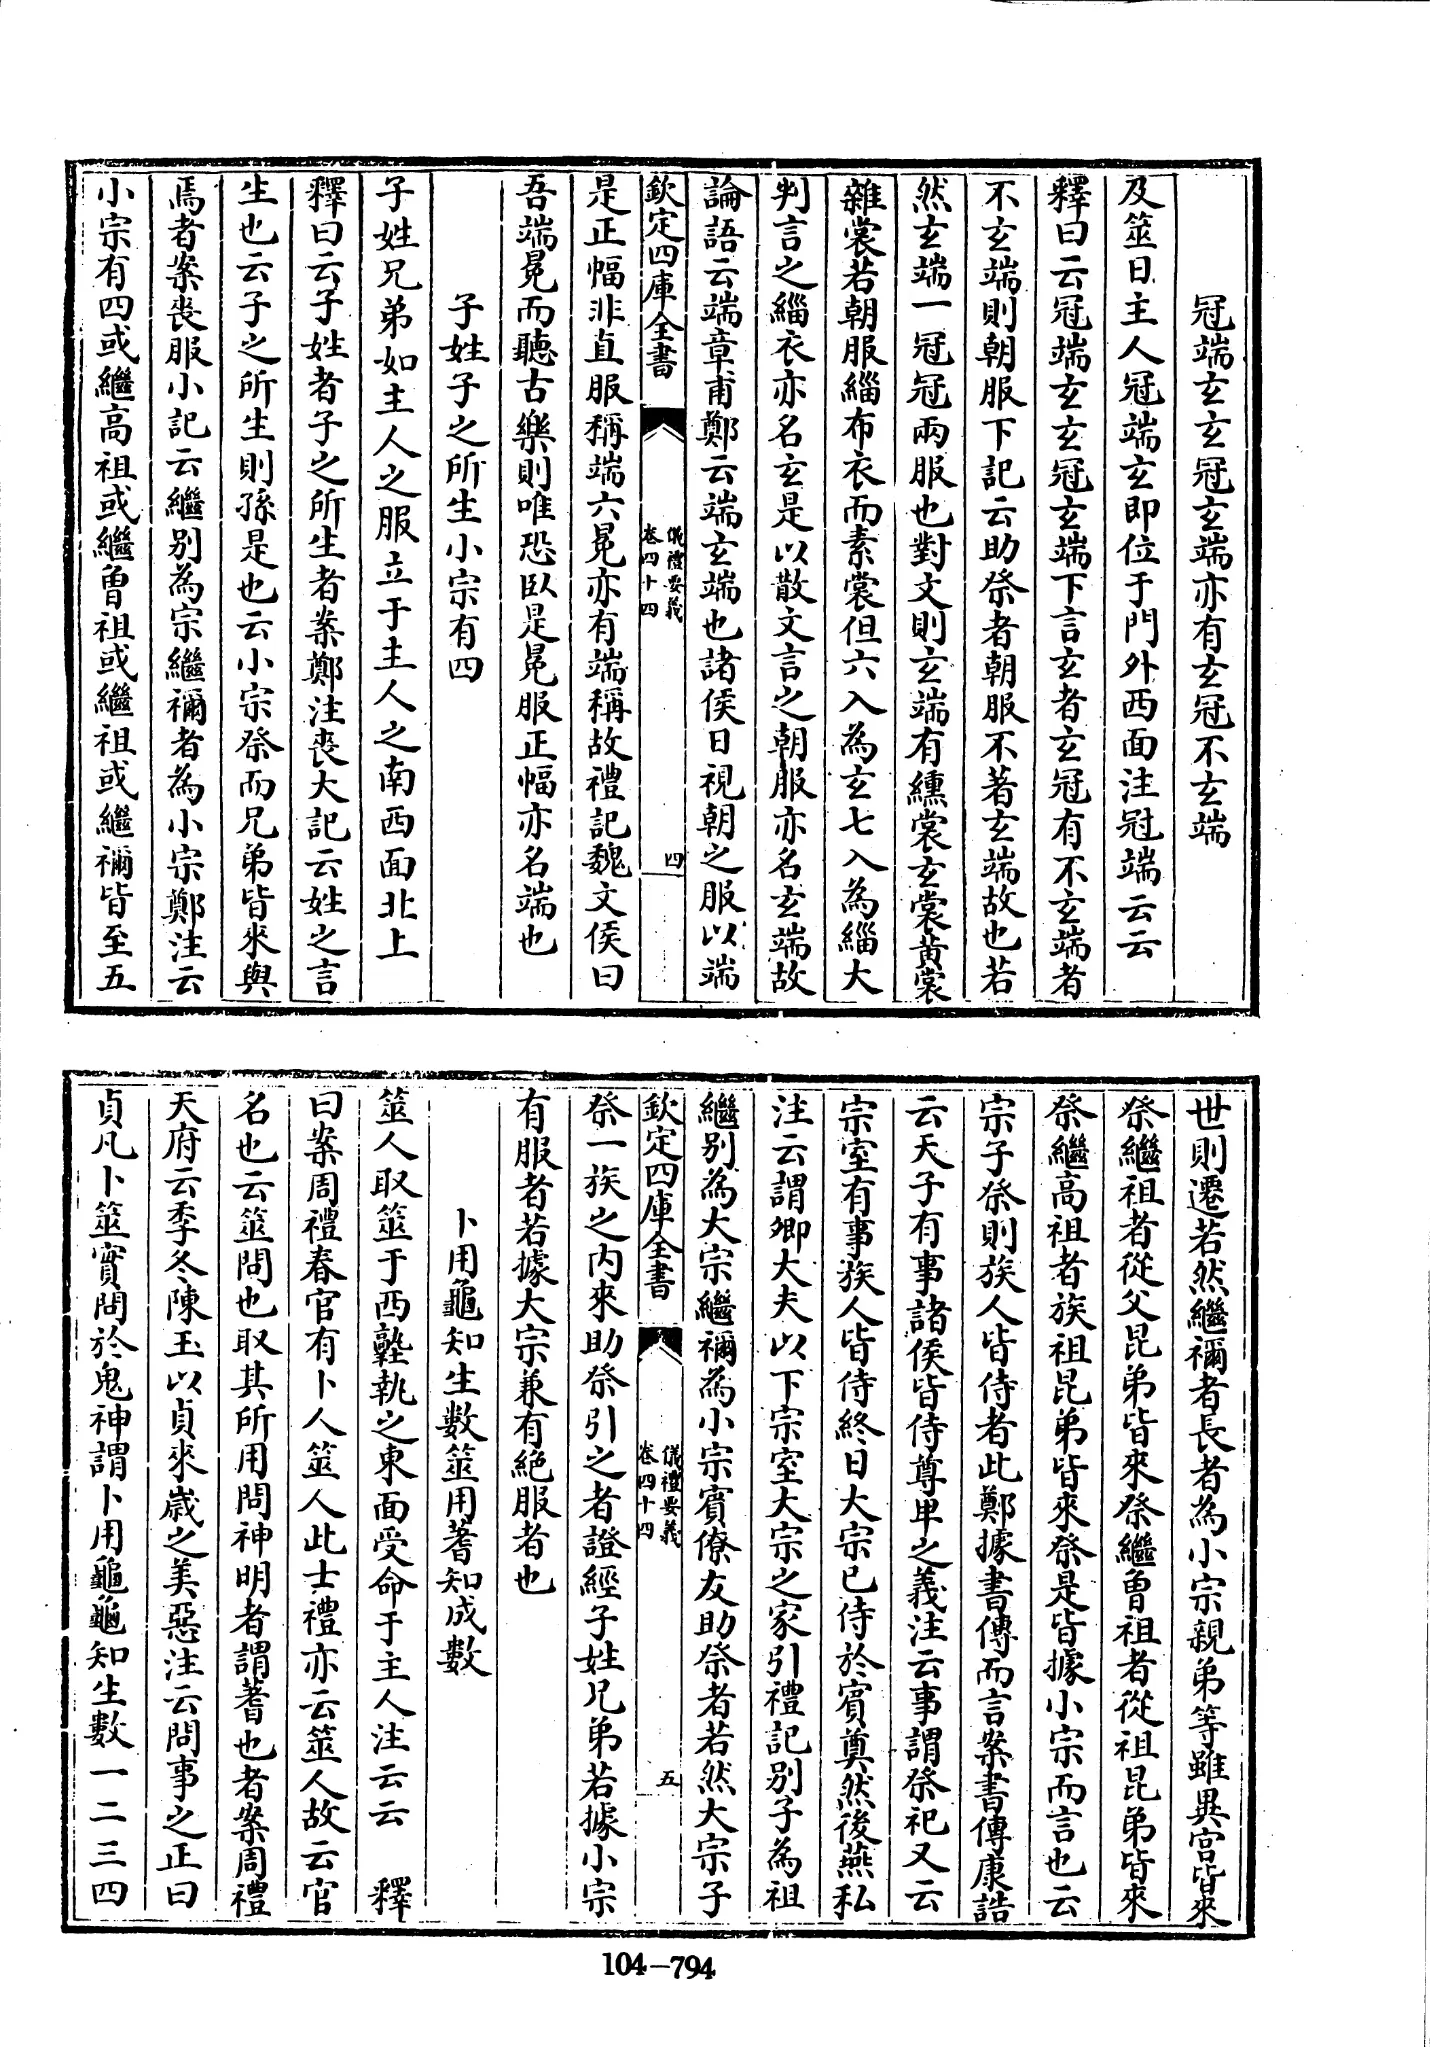 冠端玄玄冠玄端亦有玄冠不玄端
及筮日主人冠端玄即位于門外西面注冠端云云
釋曰云冠端玄玄冠玄端下言玄者玄冠有不玄端者
不玄端則朝服下記云助祭者朝服不著玄端故也若
然玄端一冠冠兩服也對文則玄端有纁裳玄裳黄裳
雜裳若朝服緇布衣而素裳但六入為玄七入為緇大
判言之緇衣亦名玄是以散文言之朝服亦名玄端故
論語云端章甫鄭云端玄端也諸侯日視朝之服以端
欽定四庫全書
儀禮要義
卷四十四
四
是正幅非直服稱端六冕亦有端稱故禮記魏文侯曰
吾端冕而聽古樂則唯恐臥是冕服正幅亦名端也
子姓子之所生小宗有四
子姓兄弟如主人之服立于主人之南西面北上
釋曰云子姓者子之所生者案鄭注喪大記云姓之言
生也云子之所生則孫是也云小宗祭而兄弟皆來與
焉者案喪服小記云繼别為宗繼禰者為小宗鄭注云
小宗有四或繼高祖或繼曾祖或繼祖或繼禰皆至五
世則遷若然繼禰者長者為小宗親弟等雖異宫皆來
祭繼祖者從父昆弟皆來祭繼曾祖者從祖昆弟皆來
祭繼高祖者族祖昆弟皆來祭是皆據小宗而言也云
宗子祭則族人皆侍者此鄭據書傳而言案書傳康誥
云天子有事諸侯皆侍尊卑之義注云事謂祭祀又云
宗室有事族人皆侍終日大宗已侍於賓奠然後燕私
注云謂卿大夫以下宗室大宗之家引禮記别子為祖
繼别為大宗繼禰為小宗賓僚友助祭者若然大宗子
欽定四庫全書
儀禮要義
卷四十四
五
祭一族之内來助祭引之者證經子姓兄弟若據小宗
有服者若據大宗兼有絶服者也
卜用龜知生數筮用蓍知成數
筮人取筮于西塾執之東面受命于主人注云云 釋
曰案周禮春官有卜人筮人此士禮亦云筮人故云官
名也云筮問也取其所用問神明者謂蓍也者案周禮
天府云季冬陳玉以貞來歲之美惡注云問事之正曰
貞凡卜筮實問於鬼神謂卜用龜龜知生數一二三四
104-794